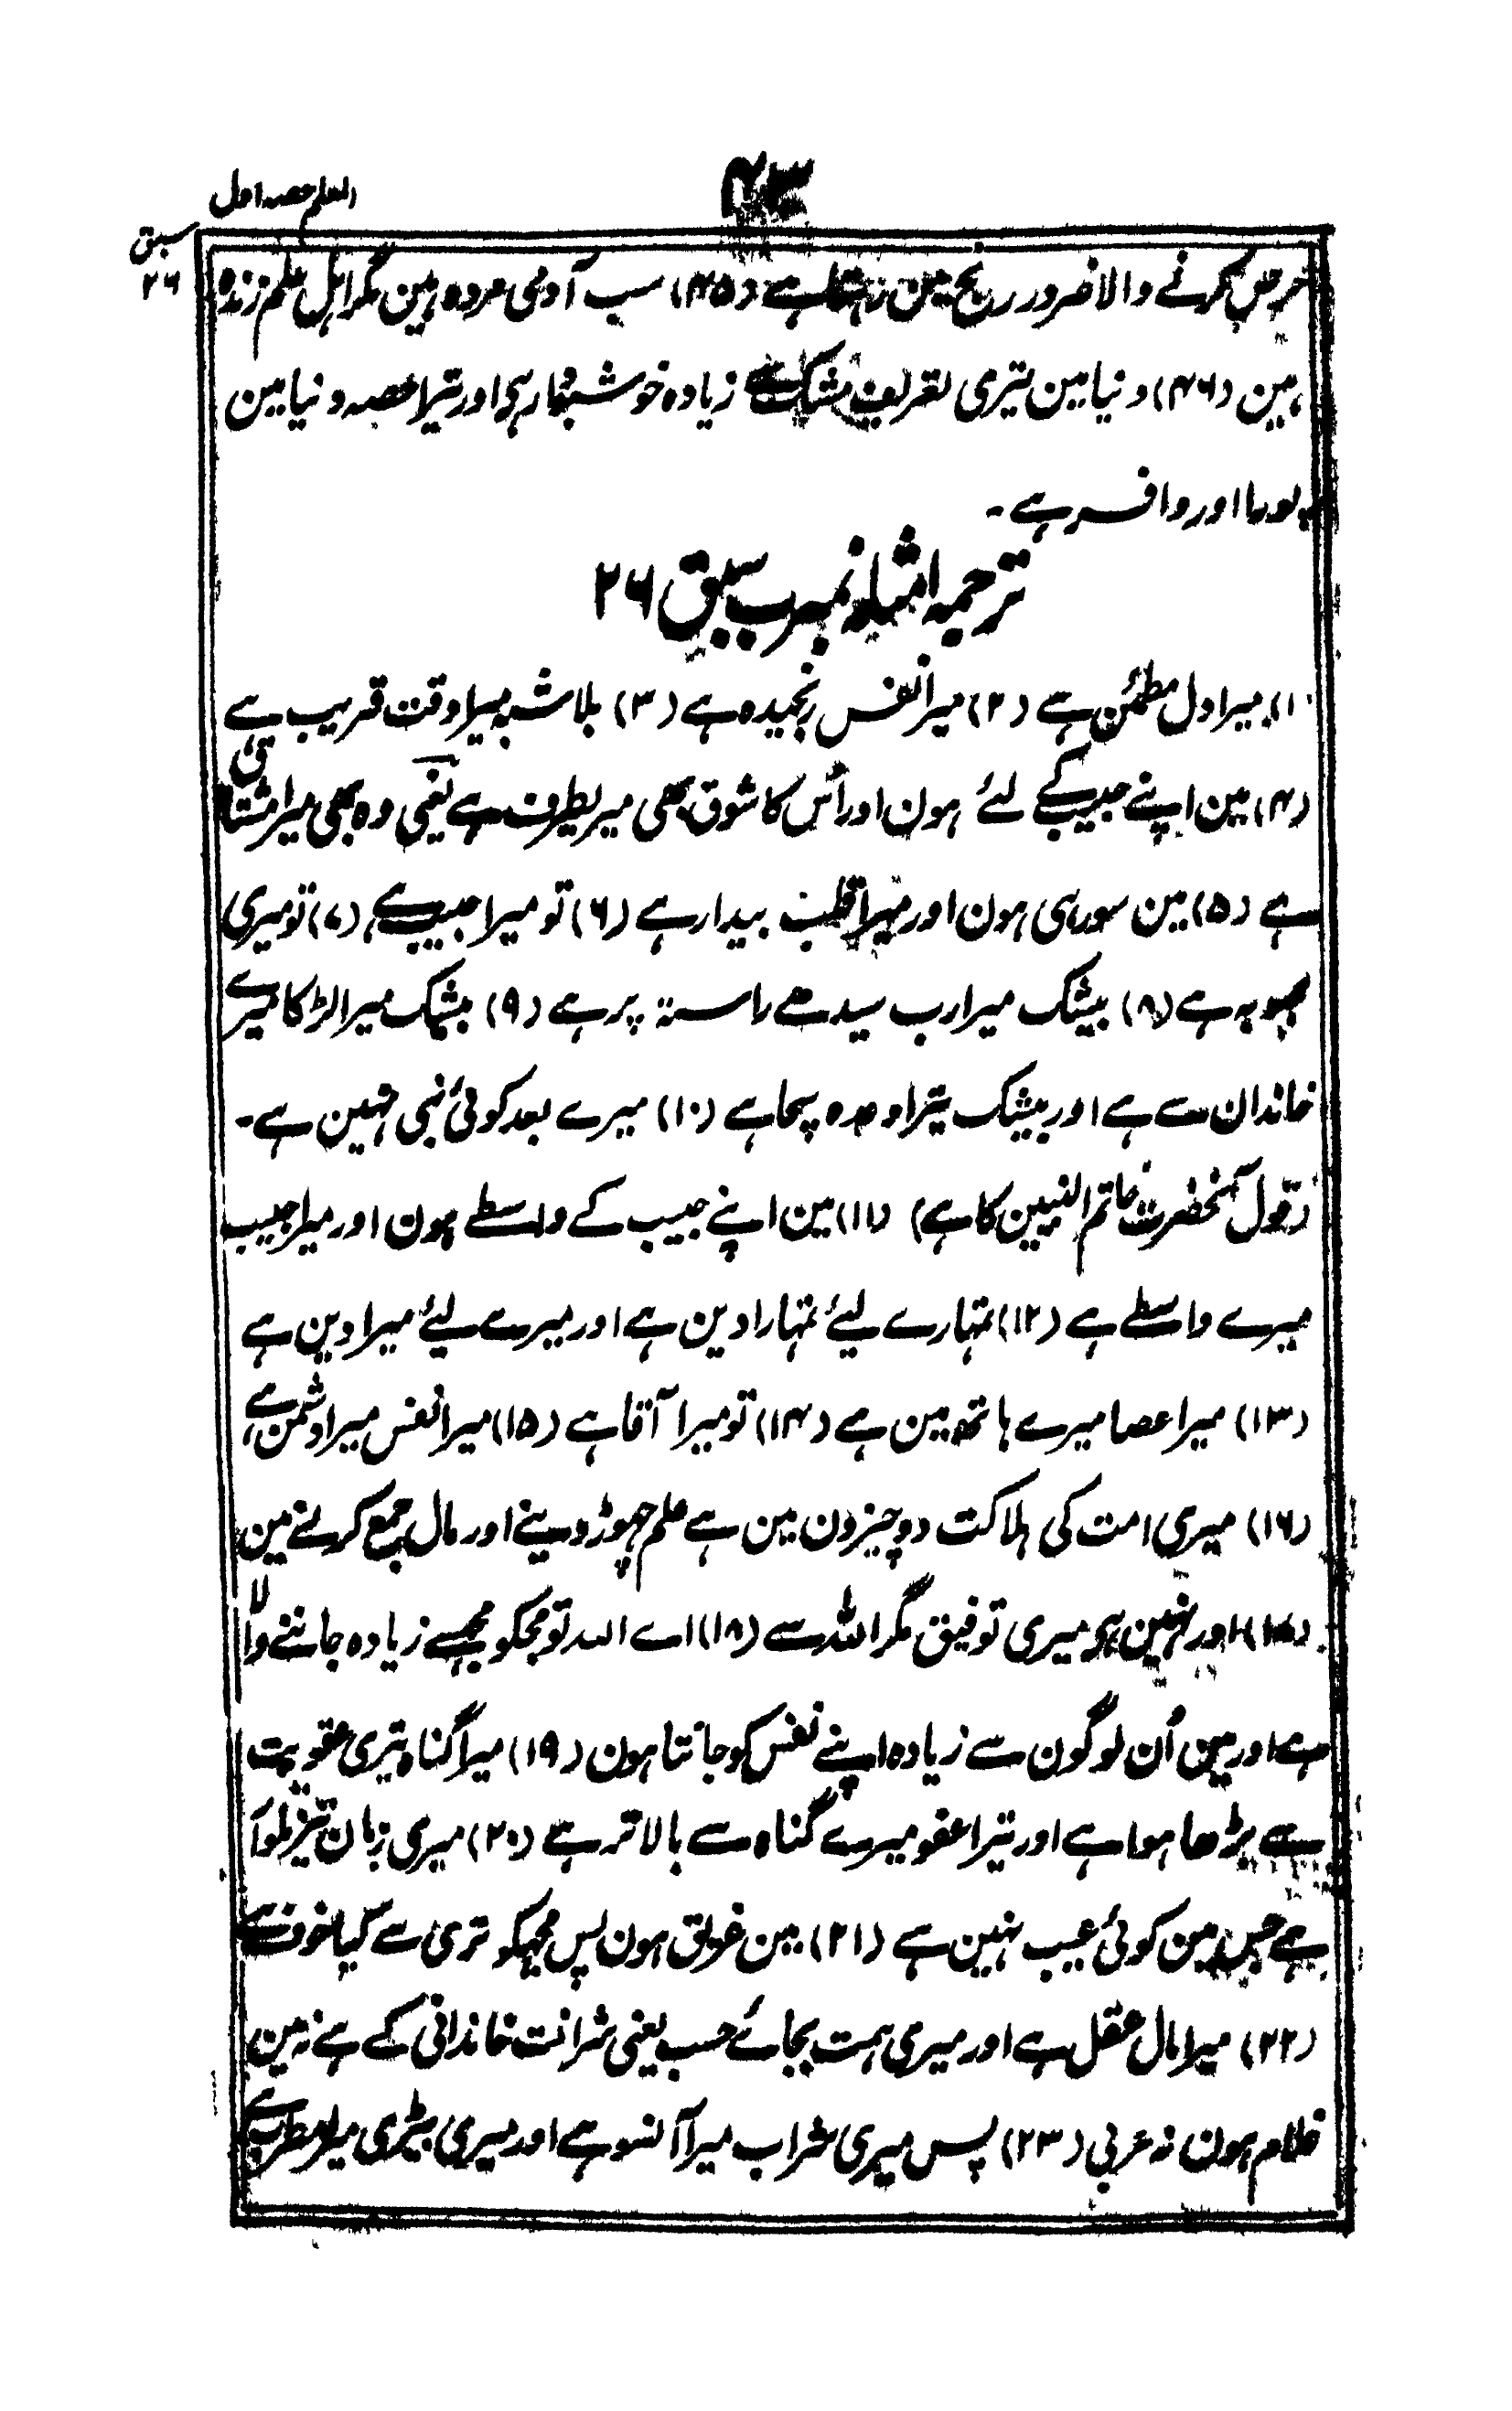 ۴۳
المعلم حصہ اول
سبق
۲۶
حرص کرنے والا ضرور رنج مین رہتا ہے (۴۵) سب آدمی مردہ ہین مگر اہل علم زندہ
ہین (۴۶) دنیا مین تیری تعریف مشک سے زیادہ خوشبودار ہی اور تیرا حصہ دنیا مین
پورا اور وافر ہے ۔
ترجمہ امثلہ نمبر سبق ۲۶
(۱) میرا دل مطمئن ہے (۲) میرا نفس رنجیدہ ہے (۳) بلاشبہ میرا وقت قریب ہے
(۴) مین اپنے حبیب کے لئے ہون اور اُس کا شوق بھی میریطرف ہے یعنی وہ بھی میرا مشتاق
ہے (۵) مین سو رہی ہون اور میرا قلب بیدار ہے (۶) تو میرا حبیب ہے (۷) تو میری
محبوبہ ہے (۸) بیشک میرا رب سیدھے راستہ پر ہے (۹) بیشک میرا لڑکا میرے
خاندان سے ہے اور بیشک تیرا وعدہ سچا ہے (۱۰) میرے بعد کوئی نبی نہین ہے ۔
(قول آنحضرت خاتم النبیین کا ہے) (۱۱) مین اپنے حبیب کے واسطے ہون اور میرا حبیب
میرے واسطے ہے (۱۲) تمہارے لیئے تمہارا دین ہے اور میرے لیئے میرا دین ہے
(۱۳) میرا عصا میرے ہاتھ مین ہے (۱۴) تو میرا آقا ہے (۱۵) میرا نفس میرا دشمن ہے
(۱۶) میری امت کی ہلاکت دو چیزون مین ہے علم چھوڑ دینے اور مال جمع کرنے مین
(۱۷) اور نہین ہو میری توفیق مگر اللہ سے (۱۸) اے اللہ تو مجکو مجھسے زیادہ جاننے والا
ہے اور مین اُن لوگون سے زیادہ اپنے نفس کو جانتا ہون (۱۹) میرا گناہ تیری عقوبت
سے بڑھا ہوا ہے اور تیرا عفو میرے گناہ سے بالاتر ہے (۲۰) میری زبان تیز تلوار
ہے جس مین کوئی عیب نہین ہے (۲۱) مین غریق ہون پس مجھکو تری سے کیا خوف ہے
(۲۲) میرا مال عقل ہے اور میری ہمت بجائے حسب یعنی شرافت خاندانی کے ہے نہ مین
غلام ہون نہ عربی (۲۳) پس میری شراب میرا آنسو ہے اور میری بیڑی میرا مطرب ہے